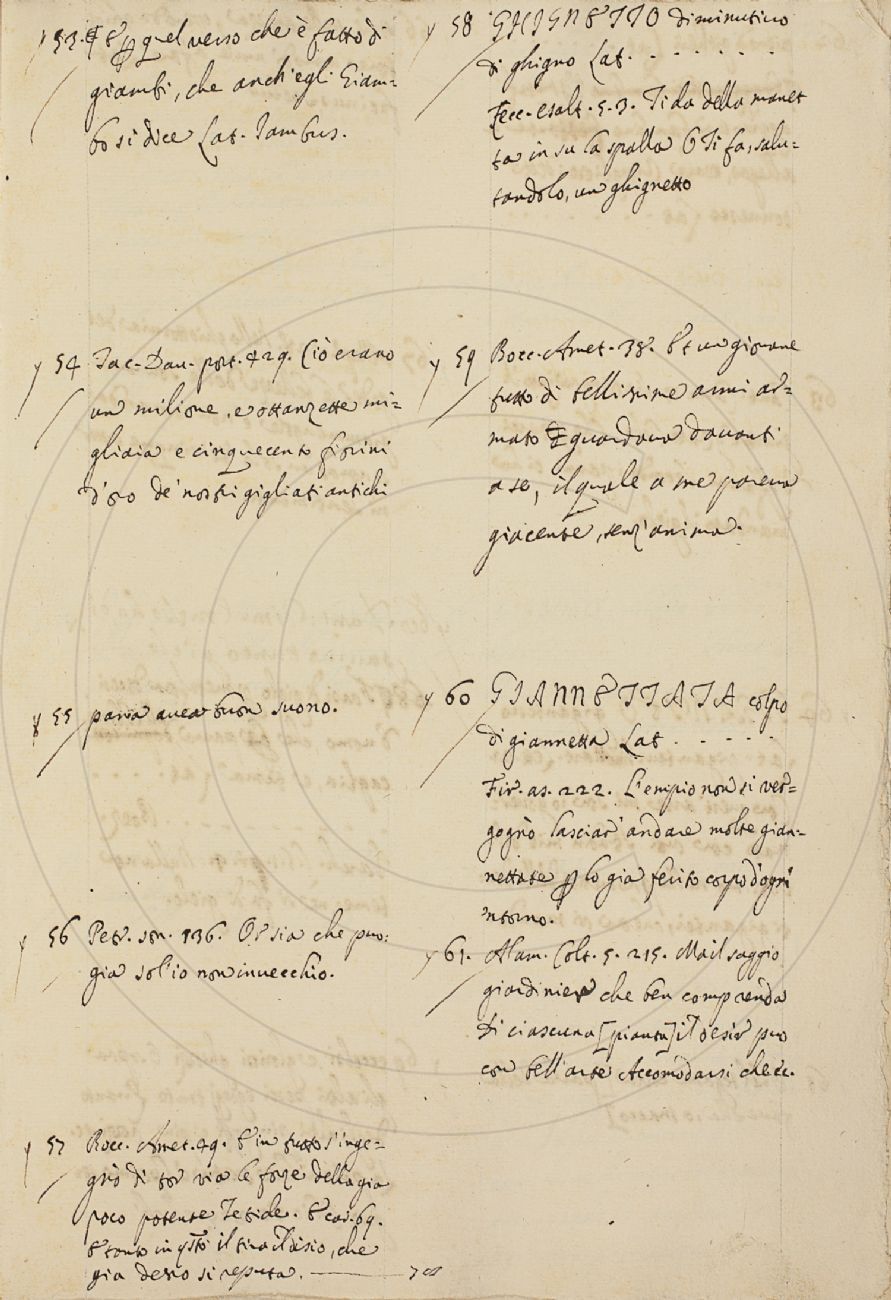 53. E p quel verso che è fatto di
giambi, che anch'egli Giam=
bo si dice Lat. Iambus.
54 Iac. Dav. post. 429. Ciò erano
un milione, e ottanzette mi=
gliaia e cinquecento fiorini
d'oro de' nostri gigliati antichi
55 parea avea buon suono.
56 Petr. son. 136. Or sia che può:
già sol io non invecchio.
57 Bocc. Amet. 49. E in tutto s'inge=
gnò di tor via le forze della già
poco potente Tetide. E car. 69.
E tanto in qsto il tira il disio, che
già desso si reputa.
58 GHIGNETTO diminutivo
di ghigno Lat. - - - - - -
Cecc. esalt. 5. 3. Ti da della manet
ta in su la spalla e ti fa, salu=
tandolo, un ghignetto
59 Bocc. Amet. 38. Et un giovane
tutto di bellissime armi ar=
mato guardava davanti
a se, il quale a me pareva
giacente, senz'anima.
60 GIANNETTATA colpo
di giannetta Lat. - - - - -
Fir. as. 222. L'empio non si ver=
gognò lasciar' andare molte gian=
nettate p lo già ferito corpo d'ogni
'ntorno.
61. Alam. Colt. 5. 215. Ma il saggio
giardinier che ben comprenda
Di ciascuna [pianta] il desir può
con bell'arte Accomodarsi che ec.